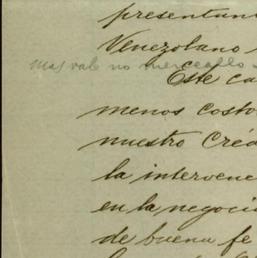 presentan
Venezolano
Mas vale no
Este ca
menos costo
nuestro Créd
la interven
en la negoci
de buena fe